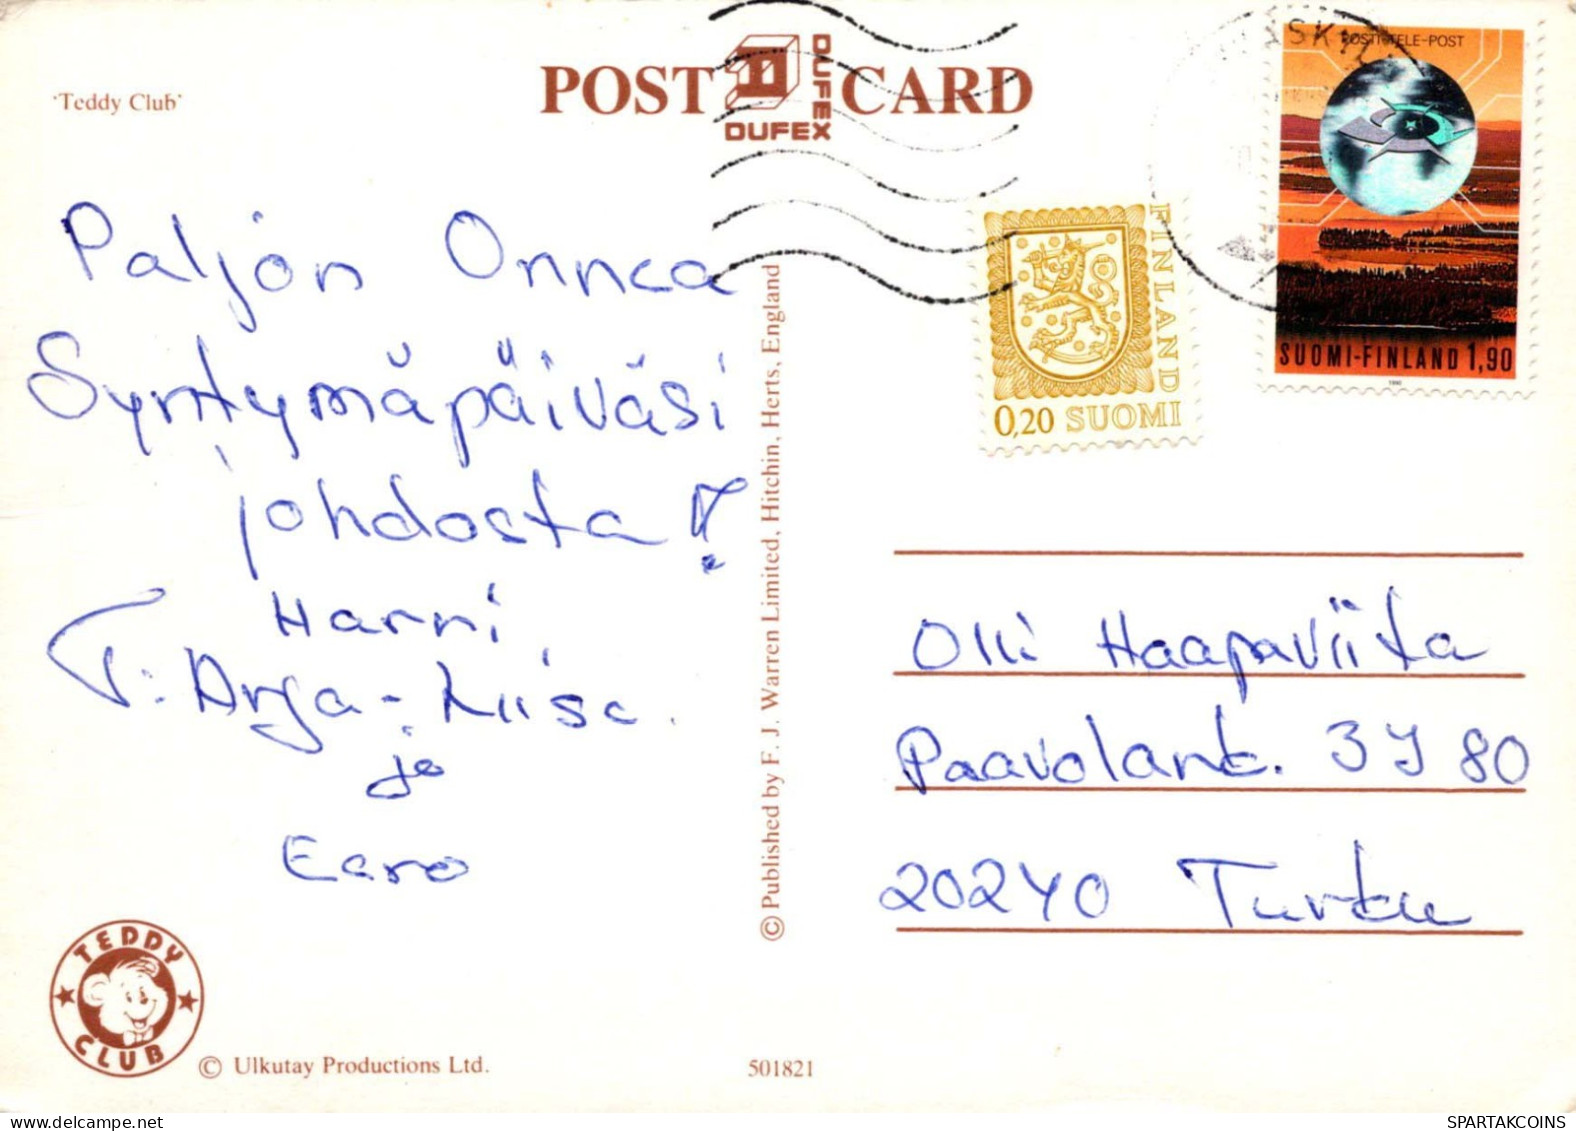 'Teddy Club'
POST CARD
DUFEX
DUFEX
POSTI-TELE-POST
SUOMI-FINLAND 1,90
1990
FINLAND
0,20 SUOMI
Paljon Onnea
Syntymäpäiväsi
johdosta!
Harri,
T: Arja-Liisa.
ja
Eero
© Published by F. J. Warren Limited, Hitchin, Herts, England
Olli Haapaviita
Paavolank. 3 J 80
20240 Turku
TEDDY CLUB
© Ulkutay Productions Ltd.
501821
SPARTAKCOINS